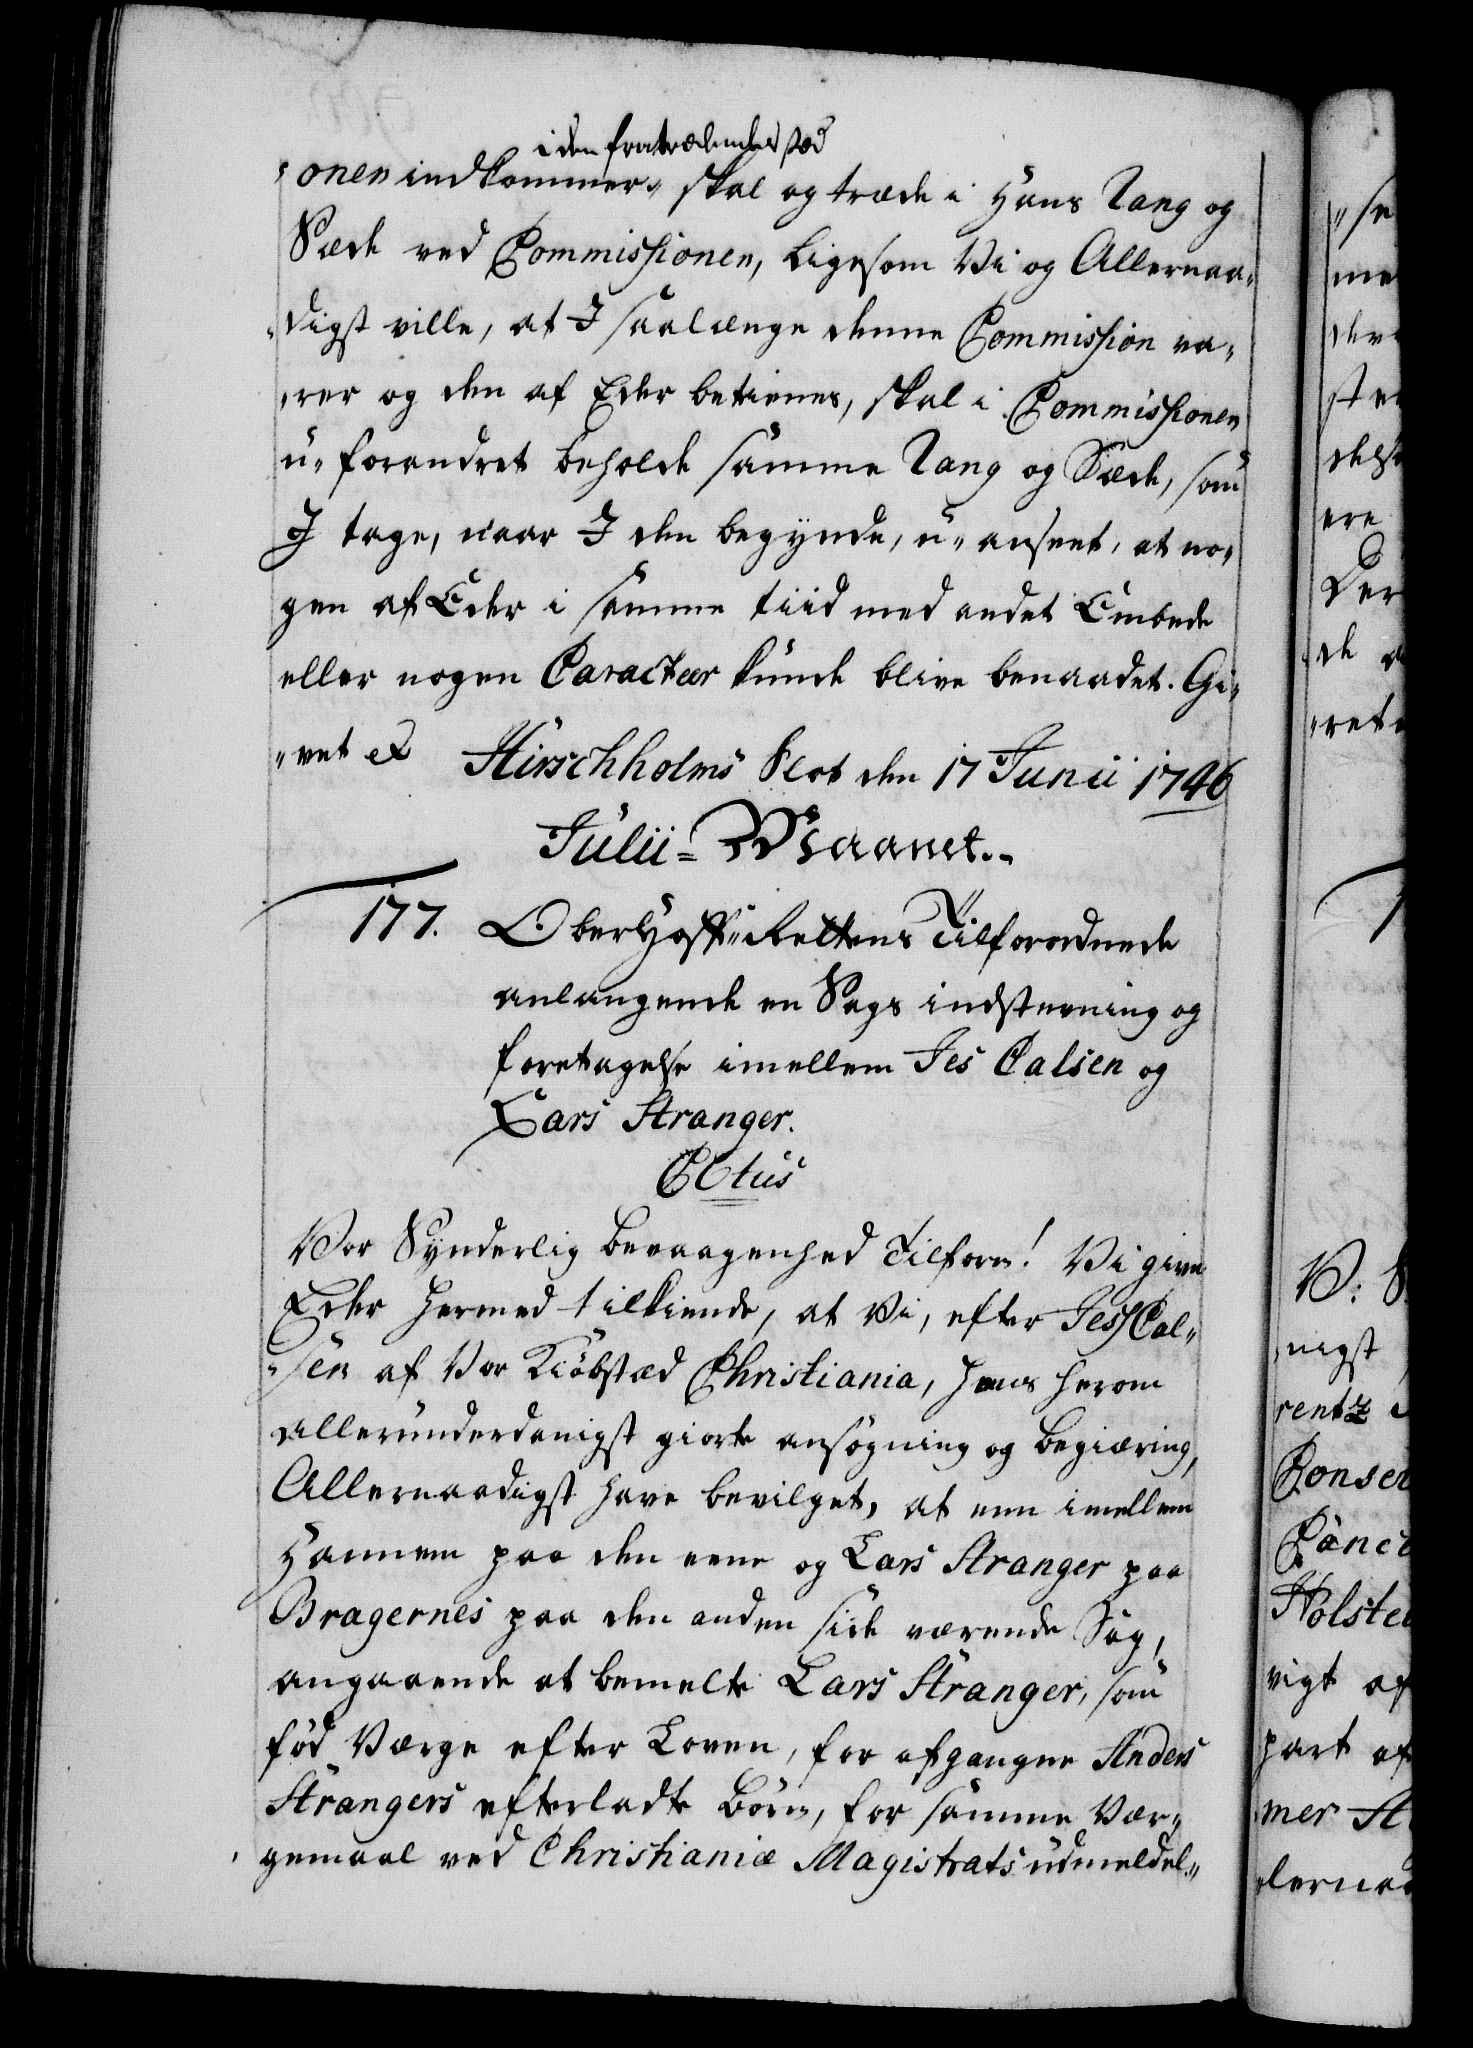 i den fratrædendes stæd
"onen indkommer, skal og træde i Hans Rang og
Sæde ved Commissionen, Ligesom Vi og Allernaa-
"digst ville, at I saalænge denne Commission va-
"rer og den af Eder betienes, skal i Commissionen
u-forandret beholde samme Rang og Sæde, som
I tage, naar I den begynde, u-anseet, at no-
gen af Eder i samme tiid med andet Embede
eller nogen Caracteer kunde blive benaadet. Gi-
"vet &c Hirschholms Slot den 17 Junii 1746
Julii-Maanet.
177. OberHoff-Rettens Tilforordnede
anlangende en Sags indstevning og
foretagelse imellem Jes Calsen og
Lars Stranger.
C6tus
Vor Synderlig bevaagenhed Tilforn! Vi give
Eder hermed tilkiende, at Vi, efter Jes Cal-
"sen af Vor Kiøbstæd Christiania, hans herom
allerunderdanigst giorte ansøgning og begiæring,
Allernaadigst have bevilget, at een imellem
Hannem paa den eene og Lars Stranger paa
Bragernes paa den anden side værende Sag,
angaaende at bemelte Lars Stranger, som
fød Værge efter Loven, for afgangne Anders
Strangers efterladte Børn, for samme Vær-
gemaal ved Christianiæ Magistrats udmeldel-